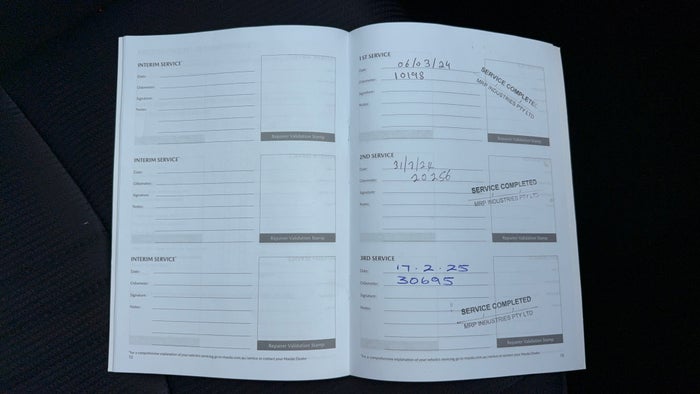 INTERIM SERVICE*
Date:
Odometer:
Signature:
Notes:
Repairer Validation Stamp
INTERIM SERVICE*
Date:
Odometer:
Signature:
Notes:
Repairer Validation Stamp
INTERIM SERVICE*
Date:
Odometer:
Signature:
Notes:
Repairer Validation Stamp
1ST SERVICE
Date: 06/03/24
Odometer: 10198
Signature:
Notes:
SERVICE COMPLETED
MRP INDUSTRIES PTY LTD
Repairer Validation Stamp
2ND SERVICE
Date: 31/7/24
Odometer: 20256
Signature:
Notes:
SERVICE COMPLETED
MRP INDUSTRIES PTY LTD
Repairer Validation Stamp
3RD SERVICE
Date: 17.2.25
Odometer: 30695
Signature:
Notes:
SERVICE COMPLETED
MRP INDUSTRIES PTY LTD
Repairer Validation Stamp